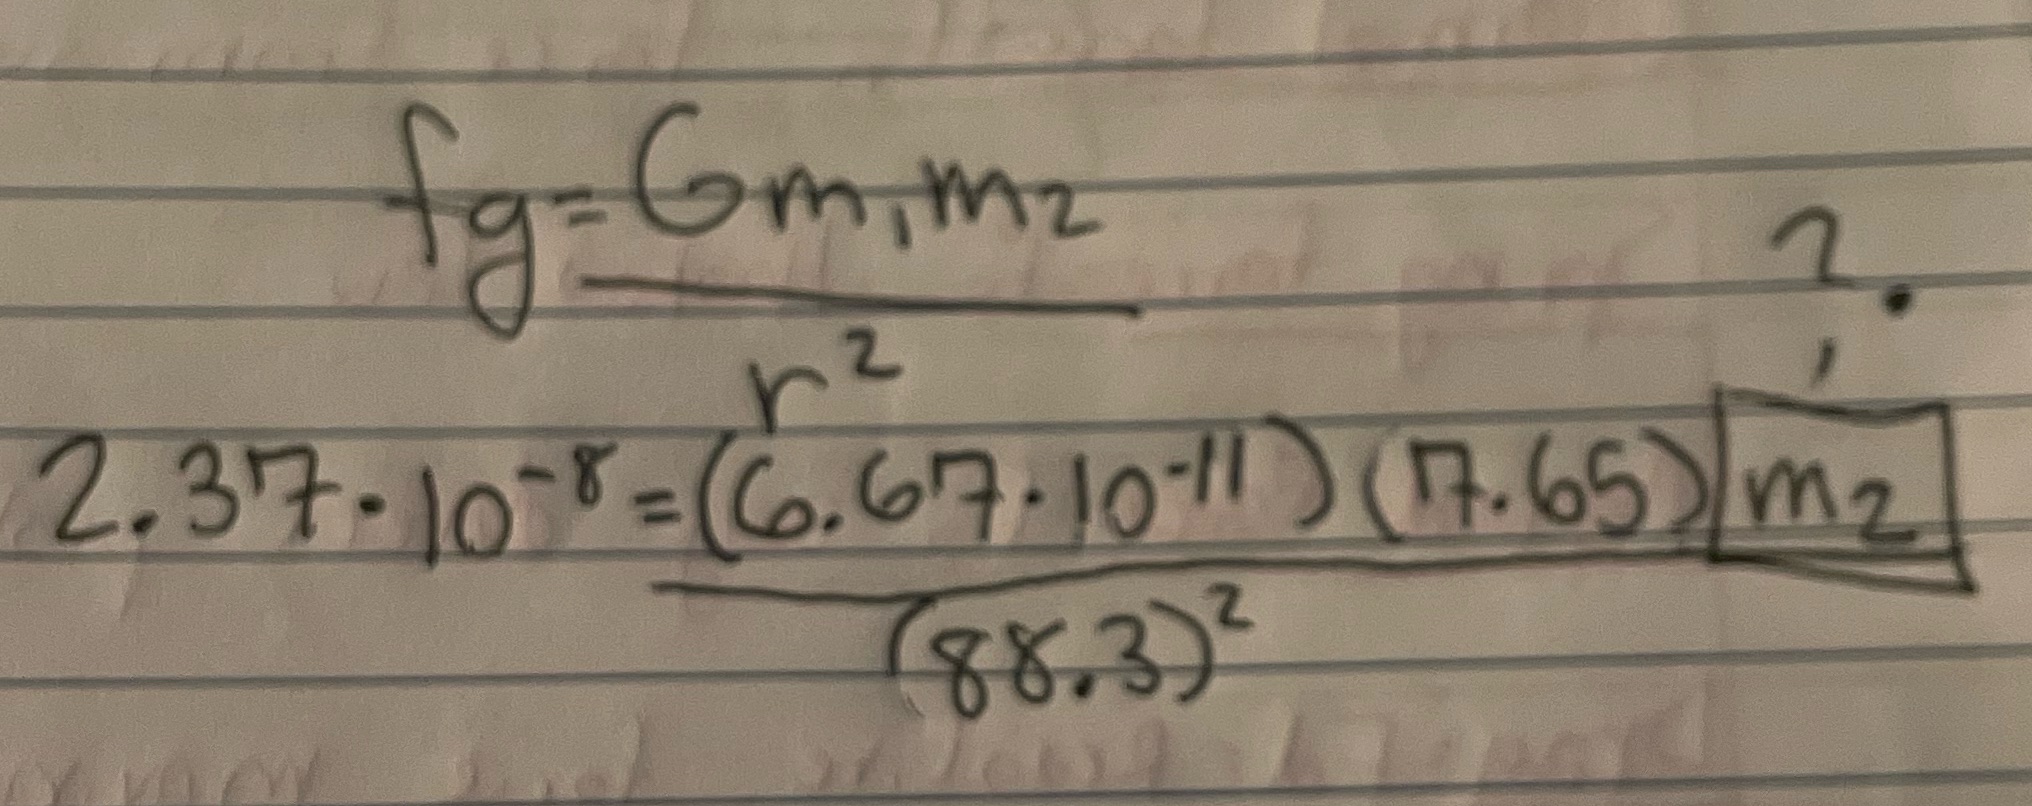 fg = Gm₁m₂
r²
?
2.37 · 10⁻⁸ = (6.67 · 10⁻¹¹) (7.65) m₂
(88.3)²